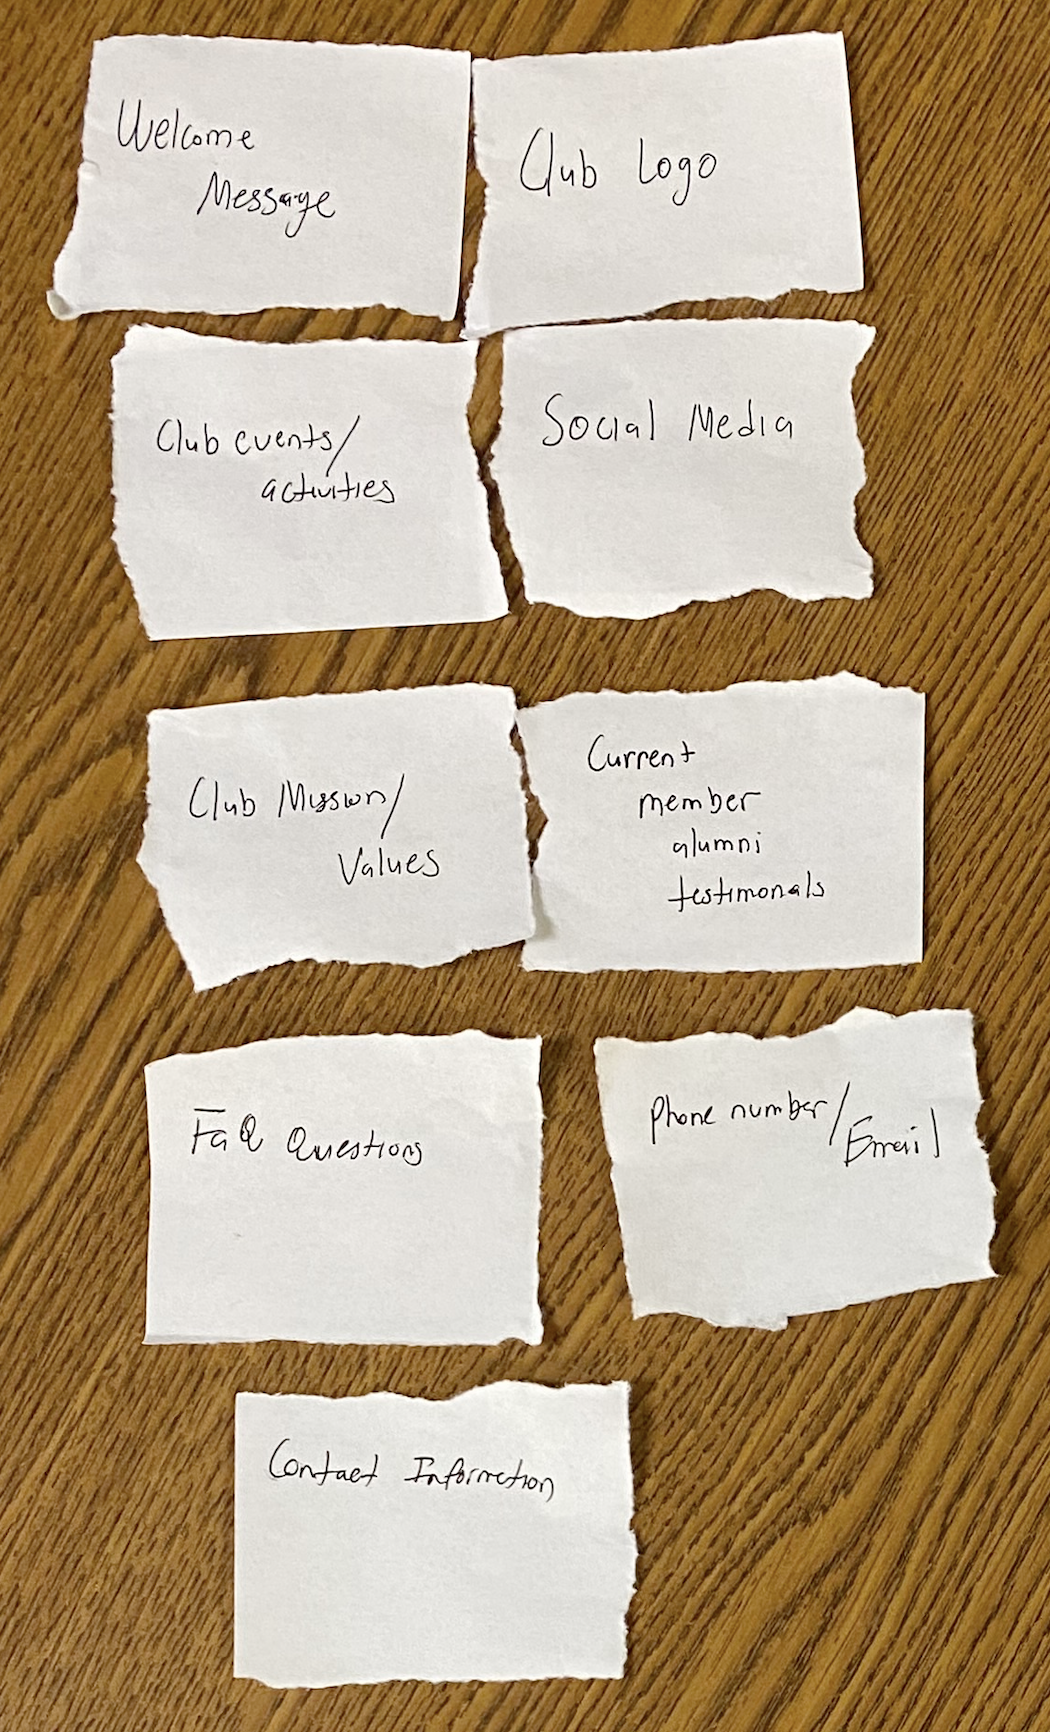 Welcome
Message
Club Logo
Club events/
activities
Social Media
Club Mission/
Values
Current
member
alumni
testimonals
FaQ Questions
Phone number/
Email
Contact Information